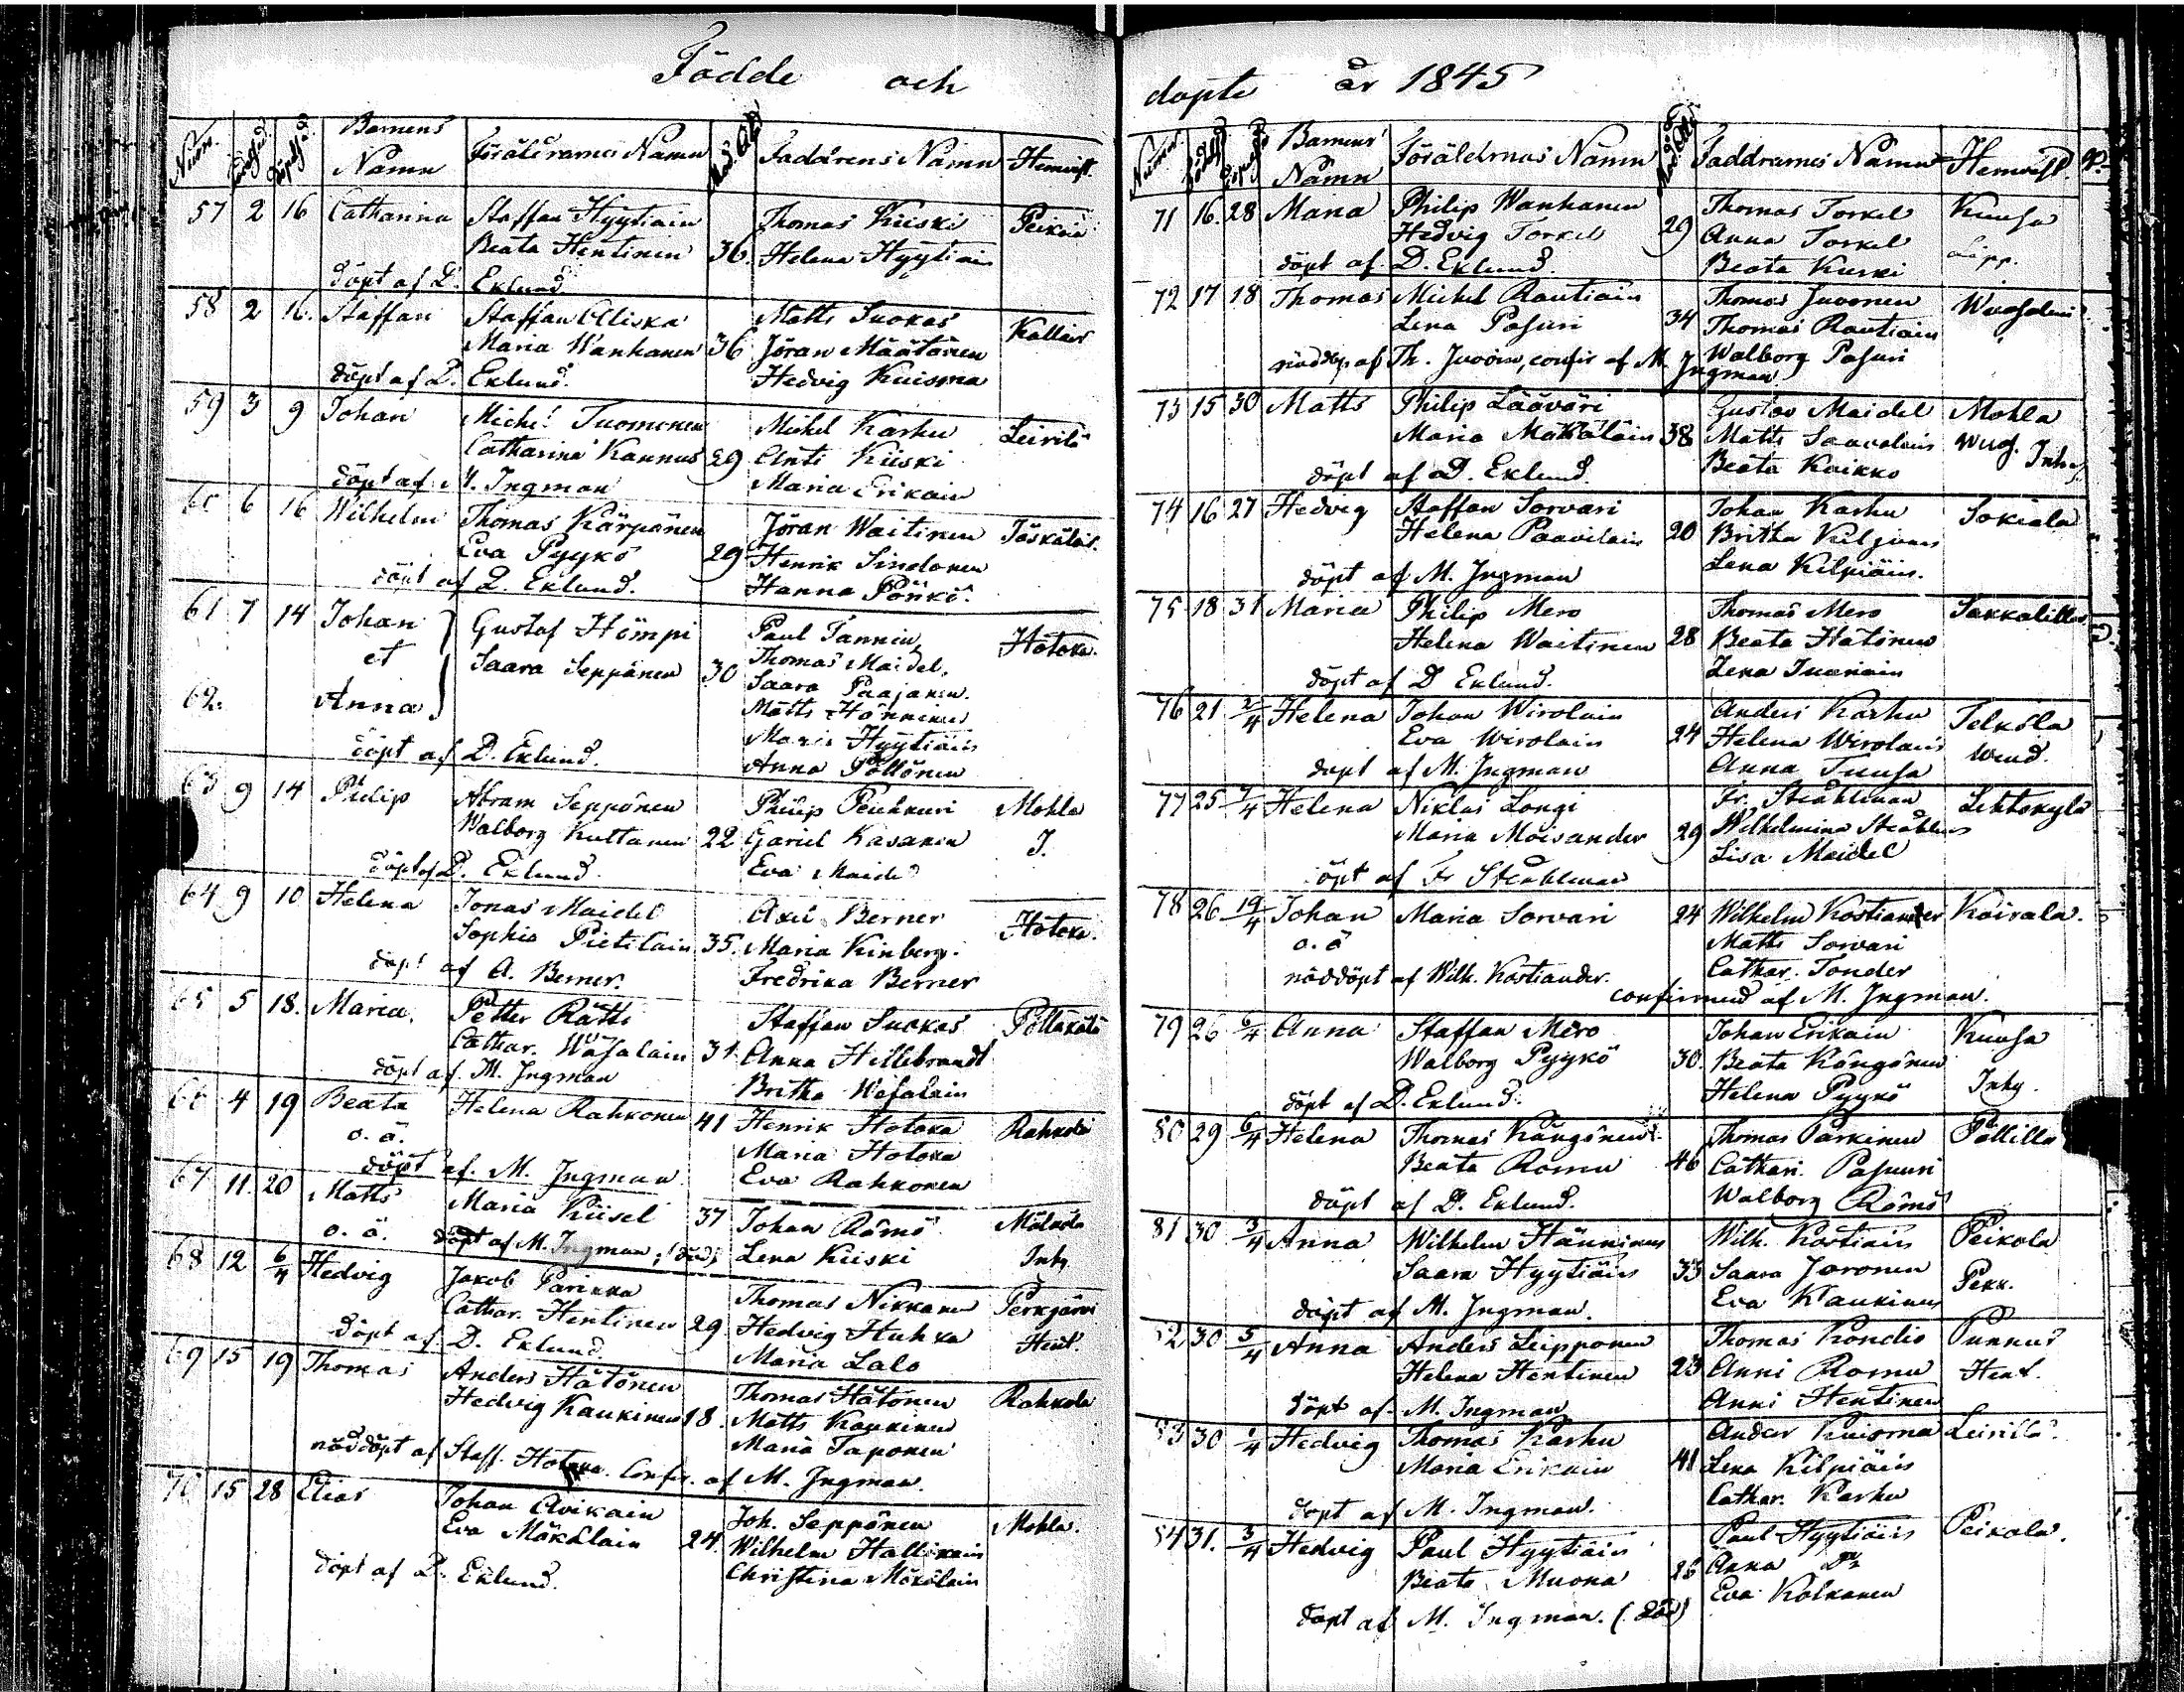 Födde och
Num. födelsed. döpelsed. Barnens Namn Föräldrarnes Namn Mod. Åld. Faddrens Namn Hemvist.
57 2 16 Catharina Staffan Hyytiäin Thomas Kiiski Peikola
Beata Hentinen 36. Helena Hyytiäin
döpt af D. Eklund
58 2 16. Staffan Staffan Aliska Matts Suokas Kallais
Maria Wanhanen 36 Jöran Määtänen
döpt af D. Eklund. Hedvig Kuisma
59 3 9 Johan Michel Tuomonen Michel Karhu Leirilä
Catharina Kannus 29 Anti Kiiski
döpt af M. Ingman Maria Erikain
60 6 16 Wilhelm Thomas Kärpänen Jöran Waitinen Jäskäläis.
Eva Pyykö 29 Henrik Sindonen
döpt af D. Eklund. Hanna Pönkö.
61 7 14 Johan Gustaf Hömpi Paul Tannin Hotoka.
et Saara Seppänen 30 Thomas Maidel.
Saara Paajanen.
62. Anna Matts Hänninen
Maria Hyytiäin
döpt af D. Eklund. Anna Pöllönen
63 9 14 Philip Abram Seppänen Philip Peuhkuri Mohla
Walborg Kuttanen 22 Gabriel Kasanen J.
döpt af D. Eklund. Eva Maidel
64 9 10 Helena Jonas Maidel Axel Berner Hotoka.
Sophia Pietiläin 35. Maria Kinberg.
döpt af A. Berner. Fredrika Berner
65 5 18. Maria. Petter Rätti Staffan Suokas Pölläkälä
Cathar. Wäsalain 31 Anna Hillebrandt
döpt af M. Ingman Britha Wäsalain
66 4 19 Beata Helena Rahkonen 41 Henrik Hotoka Rahkola
o. ä. Maria Hotoka
döpt af. M. Ingman Eva Rahkonen
67 11. 20 Matts Maria Kiisel 37 Johan Römö Mälkölä
o. ä. döpt af M. Ingman, (död) Lena Kiiski Inh.
68 12 6/4 Hedvig Jakob Parikka Thomas Nikkanen Perkjärvi
Cathar. Hentinen 29 Hedvig Huhka Hent.
döpt af D. Eklund. Maria Lalo
69 15 19 Thomas Anders Hätönen Thomas Hätönen Rahkola
Hedvig Kaukinen 18. Matts Kaukinen
Maria Taponen
nöddöpt af Staff. Hotoka. Confir. af M. Ingman.
70 15 28 Elias Johan Avikain Joh. Seppänen Mohla.
Eva Mäkäläin 24. Wilhelm Hallikain
döpt af D. Eklund. Christina Mäkäläin
döpte år 1845
Num. Barnens Namn Föräldrnas Namn Faddrarnes Namn Hemvist.
71 16. 28 Maria Philip Wanhanen Thomas Torkel Kuusa
Hedvig Torkel 29 Anna Torkel Lipp.
döpt af D. Eklund. Beata Kurki
72 17 18 Thomas Michel Rautiain Thomas Juvonen Wuosalmi
Lena Pasuri 34 Thomas Rautiain
nöddöp. af Th. Juvoin, confir af M. Ingman Walborg Pasuri
73 15 30 Matts Philip Läävöri Gustav Maidel Mohla
Maria Mäkäläin 38 Matts Saavolain Wuos. Inhy.
döpt af D. Eklund. Beata Kaikko
74 16 27 Hedvig Staffan Sorvari Johan Karhu Sokiala
Helena Paavilain 20 Britha Kiljunen
döpt af M. Ingman Lena Kilpiäin.
75 18 31 Maria Philip Mero Thomas Mero Sakkalilla
Helena Waitinen 28 Beata Hätönen
döpt af D Eklund. Lena Tuoriain
76 21 2/4 Helena Johan Wirolain Anders Karhu Telkölä
Eva Wirolain 24 Helena Wirolain Wend.
döpt af M. Ingman Anna Tuusa
77 25 7/4 Helena Niklas Longi Fr. Ståhlman Lehtokylä
Maria Moisander 29 Wilhelmina Ståhlman
döpt af Fr Ståhlman Lisa Maidel
78 26 19/4 Johan Maria Sorvari 24 Wilhelm Kostiander Koirala.
o. ä Matts Sorvari
nöddöpt af Wilh. Kostiander. Cathar. Tonder
confirmerad af M. Ingman.
79 26 6/4 Anna Staffan Mero Johan Erikain Kuusa
Walborg Pyykö 30. Beata Kängönen Inhy.
döpt af D. Eklund. Helena Pyykö
80 29 6/4 Helena Thomas Kängönen Thomas Parkinen Pällillä
Beata Romu 46 Cathari. Pasuuri
döpt af D. Eklund. Walborg Römö
81 30 3/4 Anna Wilhelm Hänninen Wilh. Kostiain Peikola
Saara Hyytiäin 33 Saara Joronen Pekk.
döpt af M. Ingman. Eva Kaukinen
82 30 5/4 Anna Anders Leipponen Thomas Kondio Punnus
Helena Hentinen 23 Anni Romu Hent.
döpt af M. Ingman Anni Hentinen
83 30 1/4 Hedvig Thomas Karhu Ander Kuisma Leirilä
Maria Erikain 41 Lena Kilpiäin
döpt af M. Ingman. Cathar. Karhu
84 31. 3/4 Hedvig Paul Hyytiäin Paul Hyytiäin Peikola.
Beata Muona 26 Anna Do
döpt af M. Ingman. (död) Eva Kolkanen